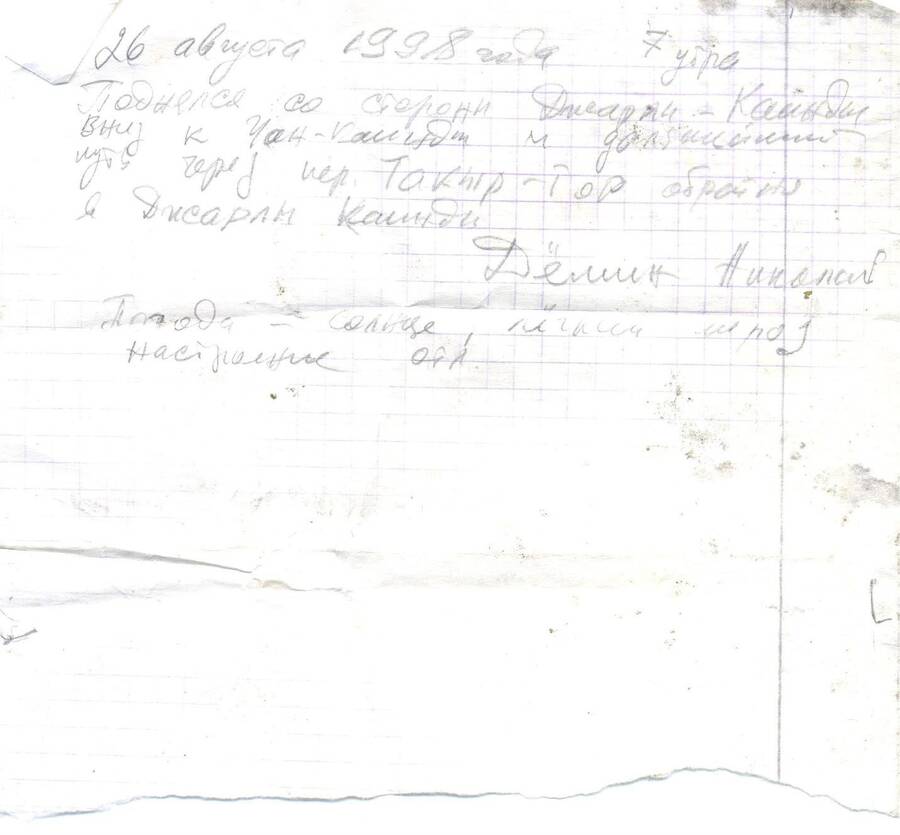 26 августа 1998 года 7 утра
Поднялся со стороны Джарлы-Каинды
вниз к Чан-Каинды и дальнейший
путь через пер. Такыр-Тор обратно
я Джарлы Каинды
Дёмин Николай
Погода - солнце, лёгкий мороз
настроение отл.